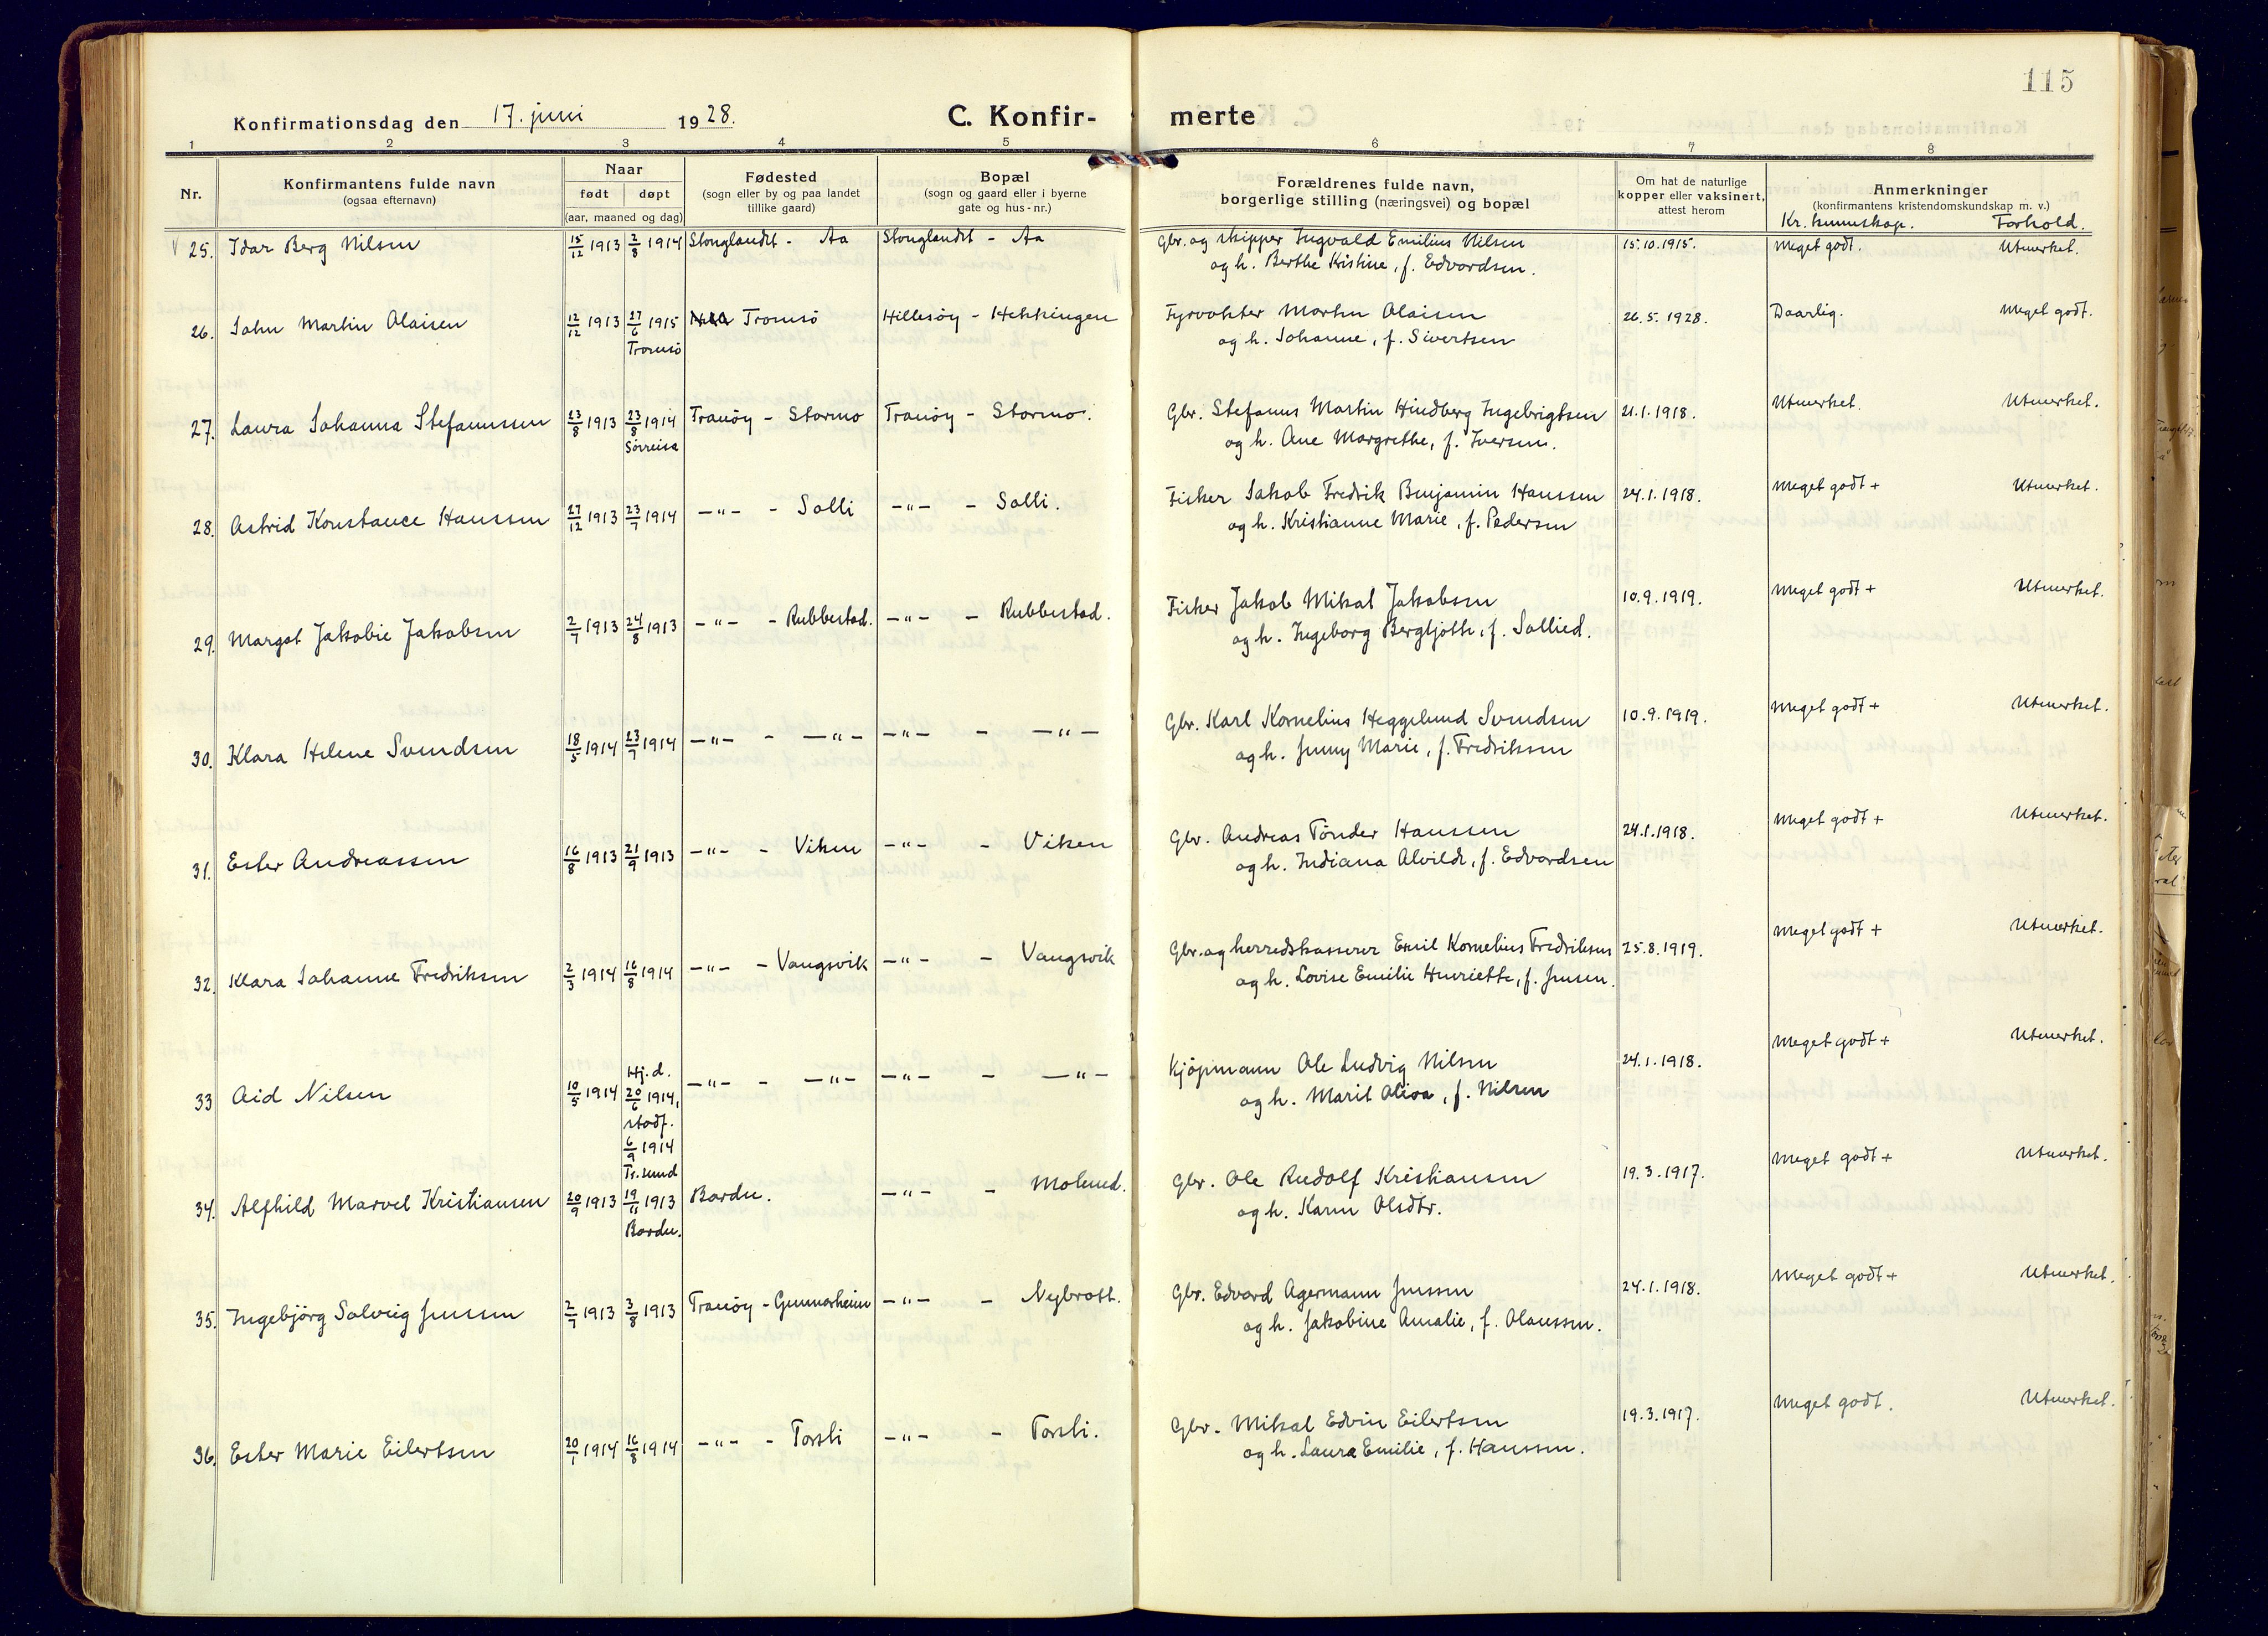 115
Konfirmationsdag den 17. juni 1928.
C. Konfir- merte
1 2 3 4 5 6 7 8
Nr.
Konfirmantens fulde navn
(ogsaa efternavn)
Naar
født døpt
(aar, maaned og dag)
Fødested
(sogn eller by og paa landet
tillike gaard)
Bopæl
(sogn og gaard eller i byerne
gate og hus-nr.)
Forældrenes fulde navn,
borgerlige stilling (næringsvei) og bopæl
Om hat de naturlige
kopper eller vaksinert,
attest herom
Anmerkninger
(konfirmantens kristendomskundskap m. v.)
Kr. kunnskap. Forhold.
25. Idar Berg Nilsen 15/12 1913 2/8 1914 Stonglandet - Aa Stonglandet - Aa Gbr. og skipper Ingvald Emilius Nilsen 15.10.1915. Meget godt. Utmerket.
og h. Berthe Kristine, f. Edvardsen.
26. John Martin Olaisen 12/12 1913 27/6 1915 Tromsö Hillesöy - Hekkingen Fyrvokter Martin Olaisen 26.5.1928. Daarlig. Meget godt.
Tromsö og h. Johanne, f. Sivertsen
27. Laura Johanna Stefanussen 23/8 1913 23/8 1914 Tranöy - Stormo Tranöy - Stormo. Gbr. Stefanus Martin Hindberg Ingebrigtsen 21.1.1918. Utmerket. Utmerket.
Sörreisa og h. Ane Margrethe, f. Iversen.
28. Astrid Konstance Hanssen 27/12 1913 23/7 1914 -"- - Solli -"- - Solli. Fisker Jakob Fredrik Benjamin Hanssen 24.1.1918. Meget godt + Utmerket.
og h. Kristianne Marie, f. Pedersen
29. Margot Jakobie Jakobsen 2/7 1913 24/8 1913 -"- - Rubbestad. -"- - Rubbestad. Fisker Jakob Mikal Jakobsen 10.9.1919. Meget godt + Utmerket.
og h. Ingeborg Bergljoth, f. Sollied.
30. Klara Helene Svendsen 18/5 1914 23/7 1914 -"- - -"- -"- - -"- Gbr. Karl Kornelius Heggelund Svendsen 10.9.1919. Meget godt + Utmerket.
og h. Jenny Marie, f. Fredriksen
31. Ester Andreassen 16/8 1913 21/9 1913 -"- - Viken -"- - Viken Gbr. Andreas Tönder Hanssen 24.1.1918. Meget godt + Utmerket.
og h. Indiana Alvilde, f. Edvardsen
32. Klara Johanne Fredriksen 2/3 1914 16/8 1914 -"- - Vangsvik -"- - Vangsvik Gbr. og herredskasserer Emil Kornelius Fredriksen 25.8.1919. Meget godt + Utmerket.
og h. Lovise Emilie Henriette, f. Jensen.
33 Aid Nilsen 10/5 1914 Hj.d. 20/6 1914, -"- - -"- -"- - -"- Kjöpmann Ole Ludvig Nilsen 24.1.1918. Meget godt + Utmerket.
stadf. og h. Marit Oliva, f. Nilsen
6/9 1914
Tr.sund
34. Alfhild Marvel Kristiansen 20/9 1913 19/11 1913 Bardu. -"- - Molund. Gbr. Ole Rudolf Kristiansen 19.3.1917. Meget godt + Utmerket.
Bardu. og h. Karen Olsdtr.
35. Ingebjörg Solveig Jenssen 2/7 1913 3/8 1913 Tranöy - Gunnarheim -"- - Nybrott. Gbr. Edvard Agermann Jenssen 24.1.1918. Meget godt + Utmerket.
og h. Jakobine Amalie, f. Olaussen.
36. Ester Marie Eilertsen 20/1 1914 16/8 1914 -"- - Torsli -"- - Torsli. Gbr. Mikal Edvin Eilertsen 19.3.1917. Meget godt. Utmerket.
og h. Laura Emilie, f. Hanssen.